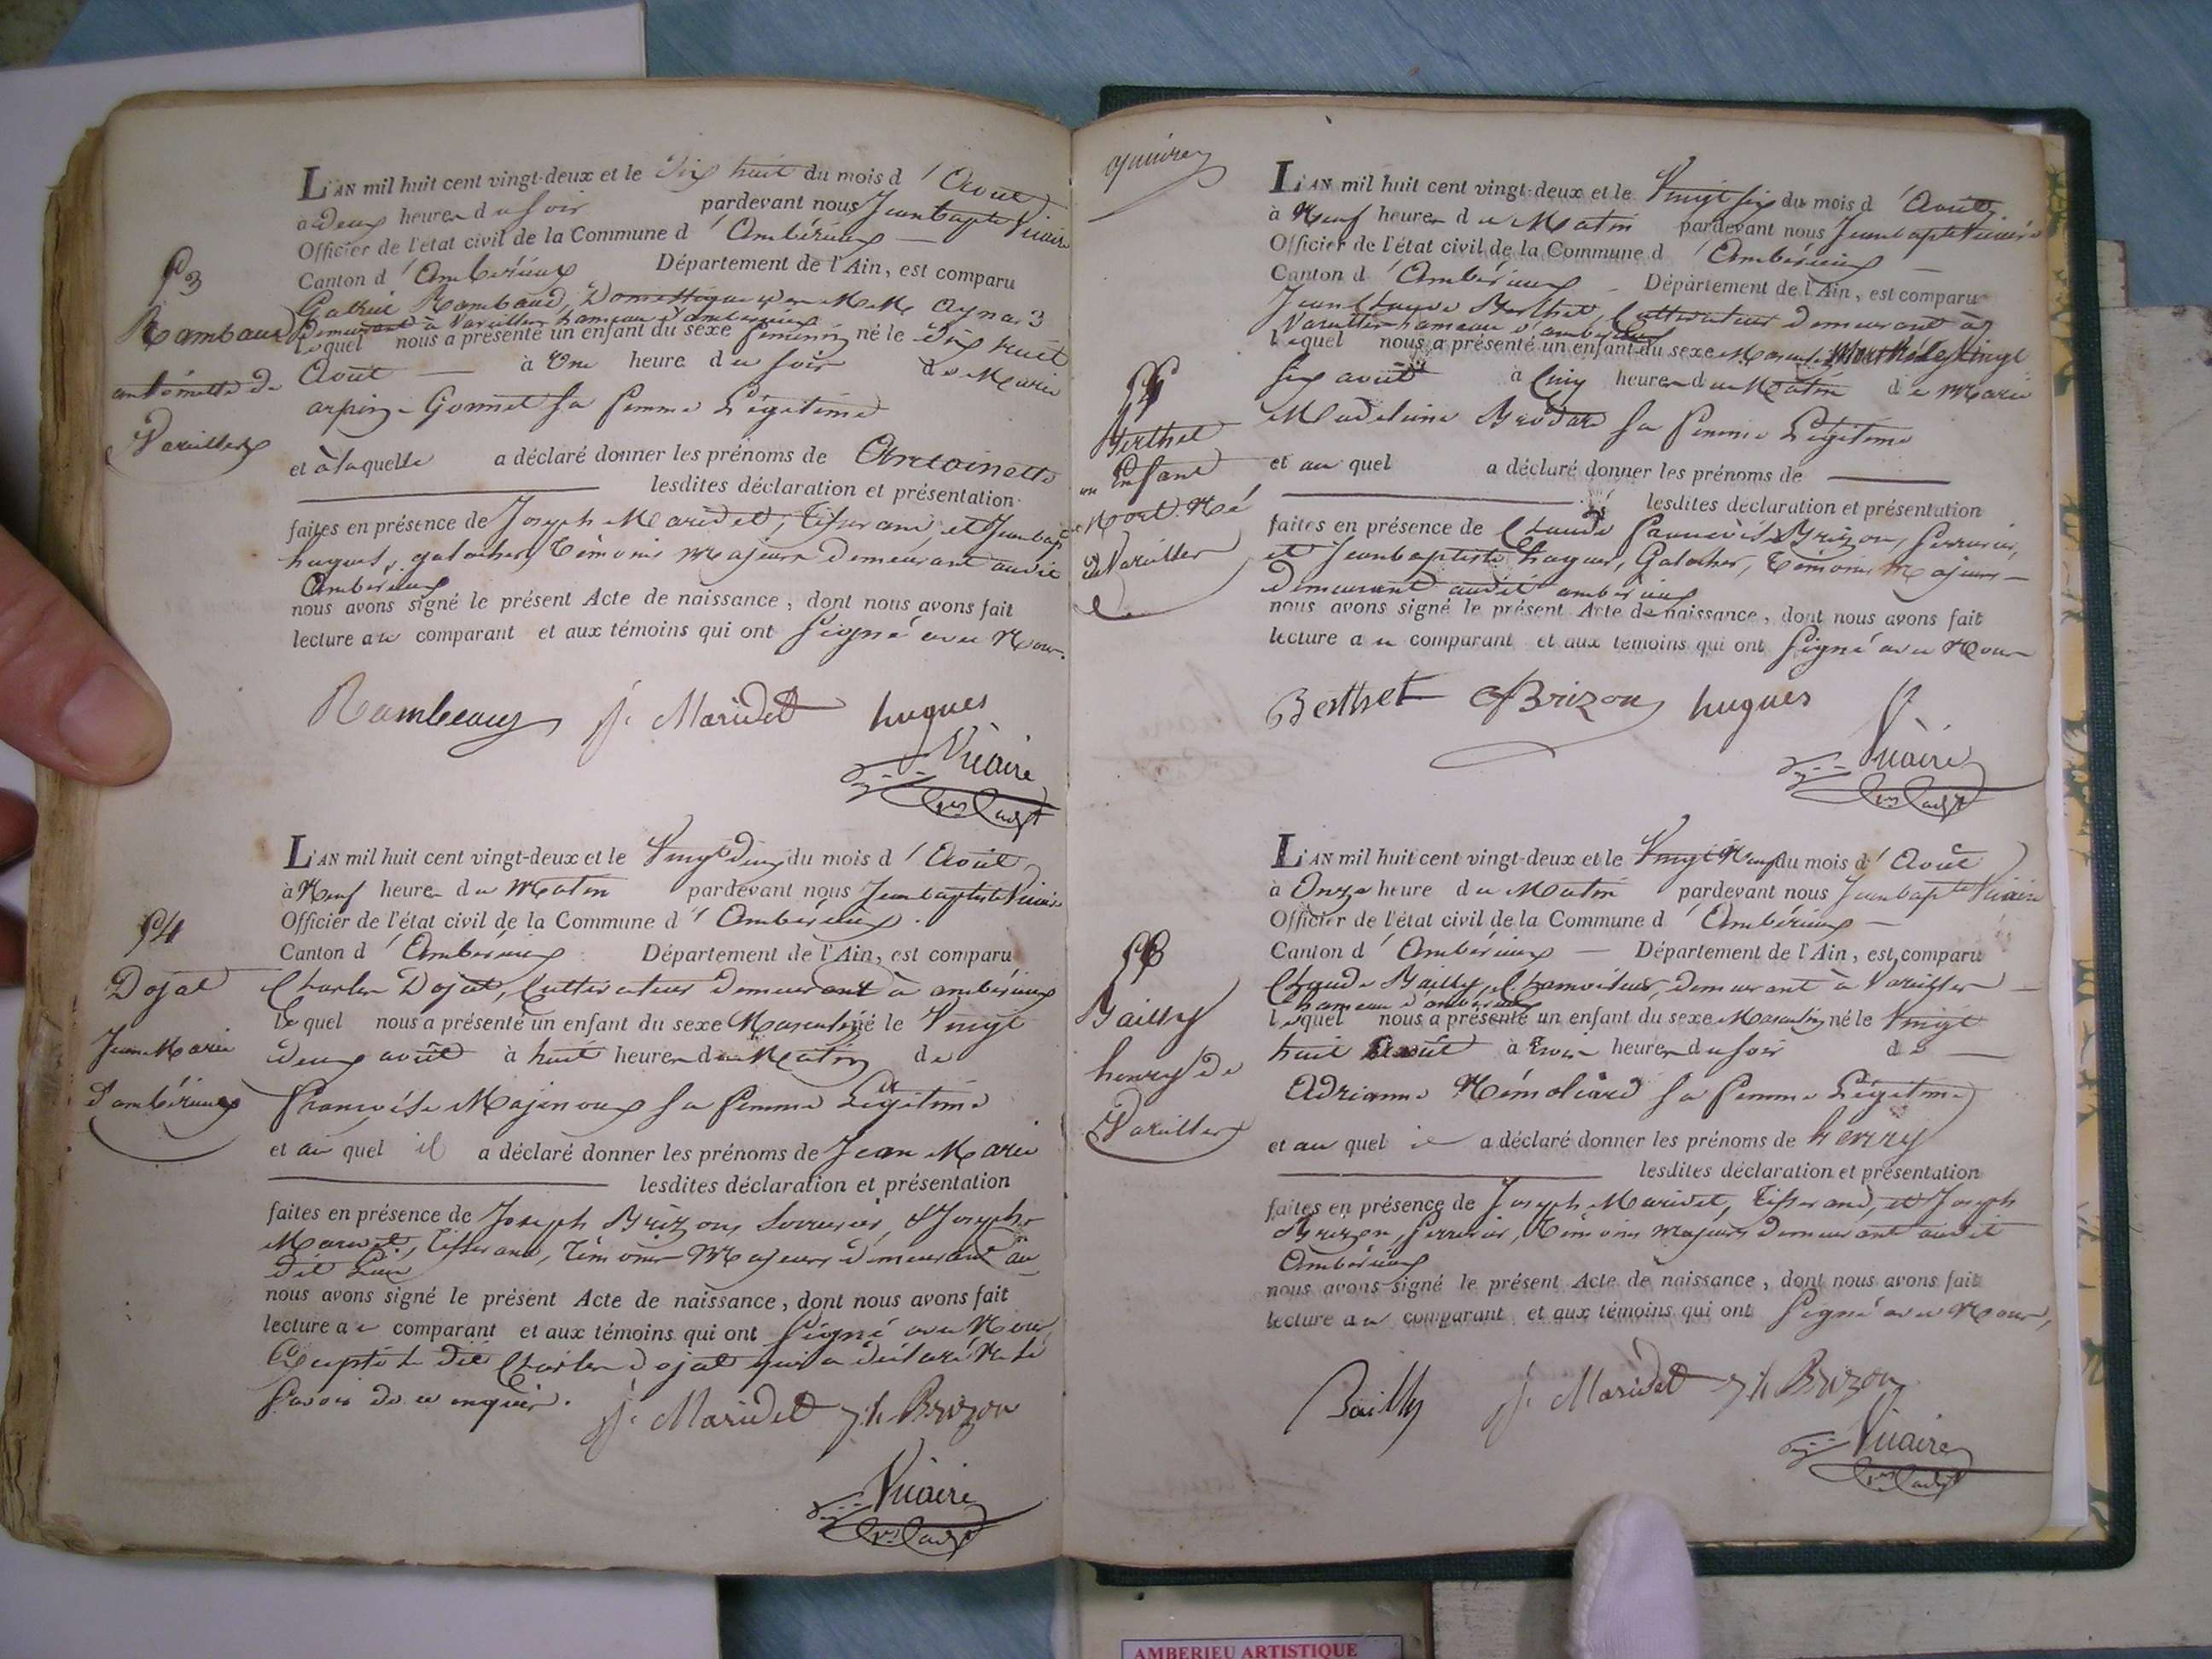 53
Rambaud
antoinette de
Vareilles
L'AN mil huit cent vingt-deux et le Dix huit du mois d'Août
à Deux heures du soir pardevant nous Jean bapte Vicaire
Officier de l'état civil de la Commune d'Ambérieux
Canton d'Ambérieux Département de l'Ain, est comparu
Rambaud, Domestique de M. Aynard
Demeurant à Vareilles hameau d'ambérieux
lequel nous a présenté un enfant du sexe féminin né le Dix huit
Août à Une heure du soir de Marie
arpin-Gonnet sa femme Légitime
et à laquelle a déclaré donner les prénoms de Antoinette
lesdites déclaration et présentation
faites en présence de Joseph Maridet, Tisserand, et Jean bapt
hugues, galocher, témoins majeurs demeurant audit
Ambérieux
nous avons signé le présent Acte de naissance, dont nous avons fait
lecture au comparant et aux témoins qui ont signé avec Nous.
Rambeaux j. Maridet hugues
Vicaire
54
Dojat
Jean Marie
d'ambérieux
L'AN mil huit cent vingt-deux et le Vingt Deux du mois d'Août
à Neuf heures du Matin pardevant nous Jean baptiste Vicaire
Officier de l'état civil de la Commune d'Ambérieux.
Canton d'Ambérieux Département de l'Ain, est comparu
Charles Dojat, Cultivateur demeurant à ambérieux
Le quel nous a présenté un enfant du sexe Masculin né le Vingt
deux août à huit heures du Matin de
françoise Majenoux sa femme Légitime
et au quel il a déclaré donner les prénoms de Jean Marie
lesdites déclaration et présentation
faites en présence de Joseph Brizon, Serrurier, & Joseph
Maridet, Tisserand, Témoins Majeurs demeurant au
dit Lieu
nous avons signé le présent Acte de naissance, dont nous avons fait
lecture au comparant et aux témoins qui ont signé avec Nous
Excepté le dit Charles Dojat qui a déclaré Ne le
savoir de ce enquis.
j. Maridet jh Brizon
Vicaire
55
Berthet
un Enfant
Mort Né
de Vareilles
L'AN mil huit cent vingt-deux et le Vingt six du mois d'Août
à Neuf heures du Matin pardevant nous Jean bapte Vicaire
Officier de l'état civil de la Commune d'Ambérieux
Canton d'Ambérieux Département de l'Ain, est comparu
Jean Claude Berthet, Cultivateur demeurant à
Vareilles hameau d'ambérieux
lequel nous a présenté un enfant du sexe Masculin Mort Né le Vingt
six août à Cinq heures du Matin de Marie
Madeleine Brodard sa femme Légitime
et au quel a déclaré donner les prénoms de
lesdites déclaration et présentation
faites en présence de Claude françois Brizon, serrurier,
et Jean baptiste hugues, Galocher, Témoins Majeurs
demeurant audit ambérieux
nous avons signé le présent Acte de naissance, dont nous avons fait
lecture au comparant et aux témoins qui ont signé avec Nous
Berthet Brizon hugues
Vicaire
56
Bailly
henry de
Vareilles
L'AN mil huit cent vingt-deux et le Vingt Neuf du mois d'Août
à Onze heure du Matin pardevant nous Jean bapte Vicaire
Officier de l'état civil de la Commune d'Ambérieux
Canton d'Ambérieux Département de l'Ain, est comparu
Claude Bailly, Chamoiseur, demeurant à Vareilles
hameau d'ambérieux
lequel nous a présenté un enfant du sexe Masculin né le Vingt
huit Août à Trois heures du soir de
Adrianne Némoliard sa femme Légitime
et au quel il a déclaré donner les prénoms de henry
lesdites déclaration et présentation
faites en présence de Joseph Maridet, Tisserand, et Joseph
Brizon, serrurier, Témoins majeurs demeurant audit
Ambérieux
nous avons signé le présent Acte de naissance, dont nous avons fait
lecture au comparant et aux témoins qui ont signé avec Nous,
Bailly j. Maridet jh Brizon
Vicaire
AMBERIEU ARTISTIQUE